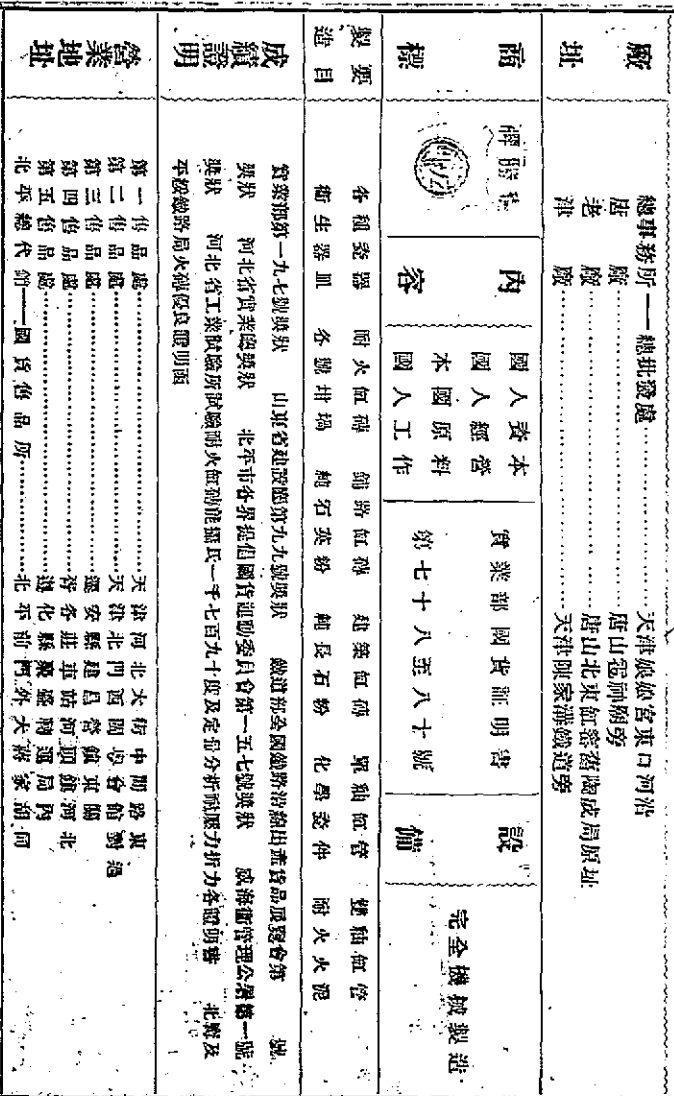 廠址
總事務所——總批發處……天津娘娘宮東口河沿
唐廠……唐山雹神廟旁
老廠……唐山北東缸窰舊陶成局原址
津廠……天津陳家溝鐵道旁
商標
內容
國人資本
國人經營
本國原料
國人工作
實業部國貨証明書
第七十八至八十號
設備
完全機械製造
製造要目
各種瓷器 耐火缸磚 鋪路缸磚 建築缸磚 單釉缸管 雙釉缸管
衛生器皿 各號坩堝 純石英粉 純長石粉 化學瓷件 耐火火泥
成績證明
實業部第一九七號獎狀 山東省建設廳第九九號獎狀 鐵道部全國鐵路沿線出產貨品展覽會第 號
獎狀 河北省實業廳獎狀 北平市各界提倡國貨運動委員會第一五七號獎狀 威海衛管理公署第一號
獎狀 河北省工業試驗所試驗耐火缸磚能攝氏一千七百九十度及定量分析耐壓力折力各證明書 北寧及
平綏鐵路局火磚優良證明函
營業地址
第一售品處……天津河北大街中間路東
第二售品處……天津北門西閩粵會館對過
第三售品處……遷安縣建昌營鎮東關
第四售品處……胥各莊車站河頭鎮河北
第五售品處……遵化縣聚盛轉運局內
北平總代銷——國貨售品所……北平前門外大蔣家胡同